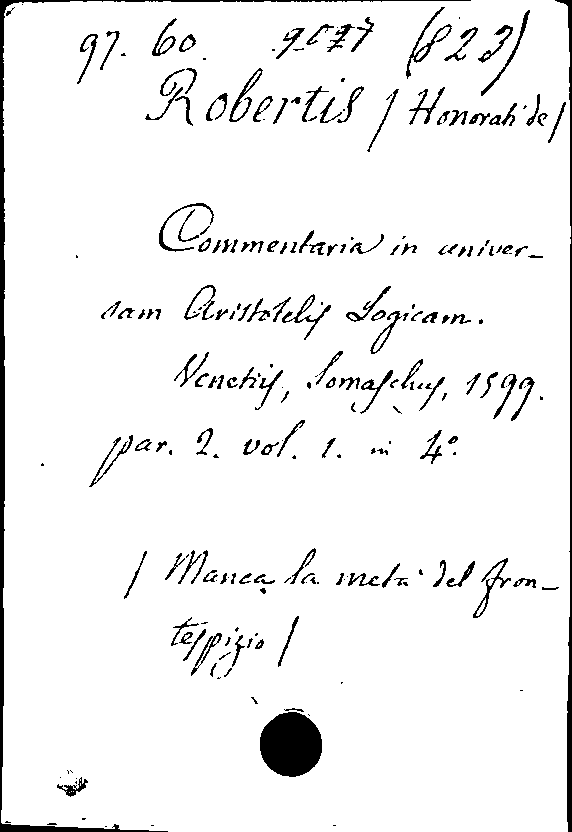 97. 60. 9077 (823)
Robertis / Honorati de /
Commentaria in univer-
sam Aristotelis Logicam.
Venetiis, Somaschus, 1599.
par. 2. vol. 1. in 4°.
/ Manca la metà del fron-
tespizio /